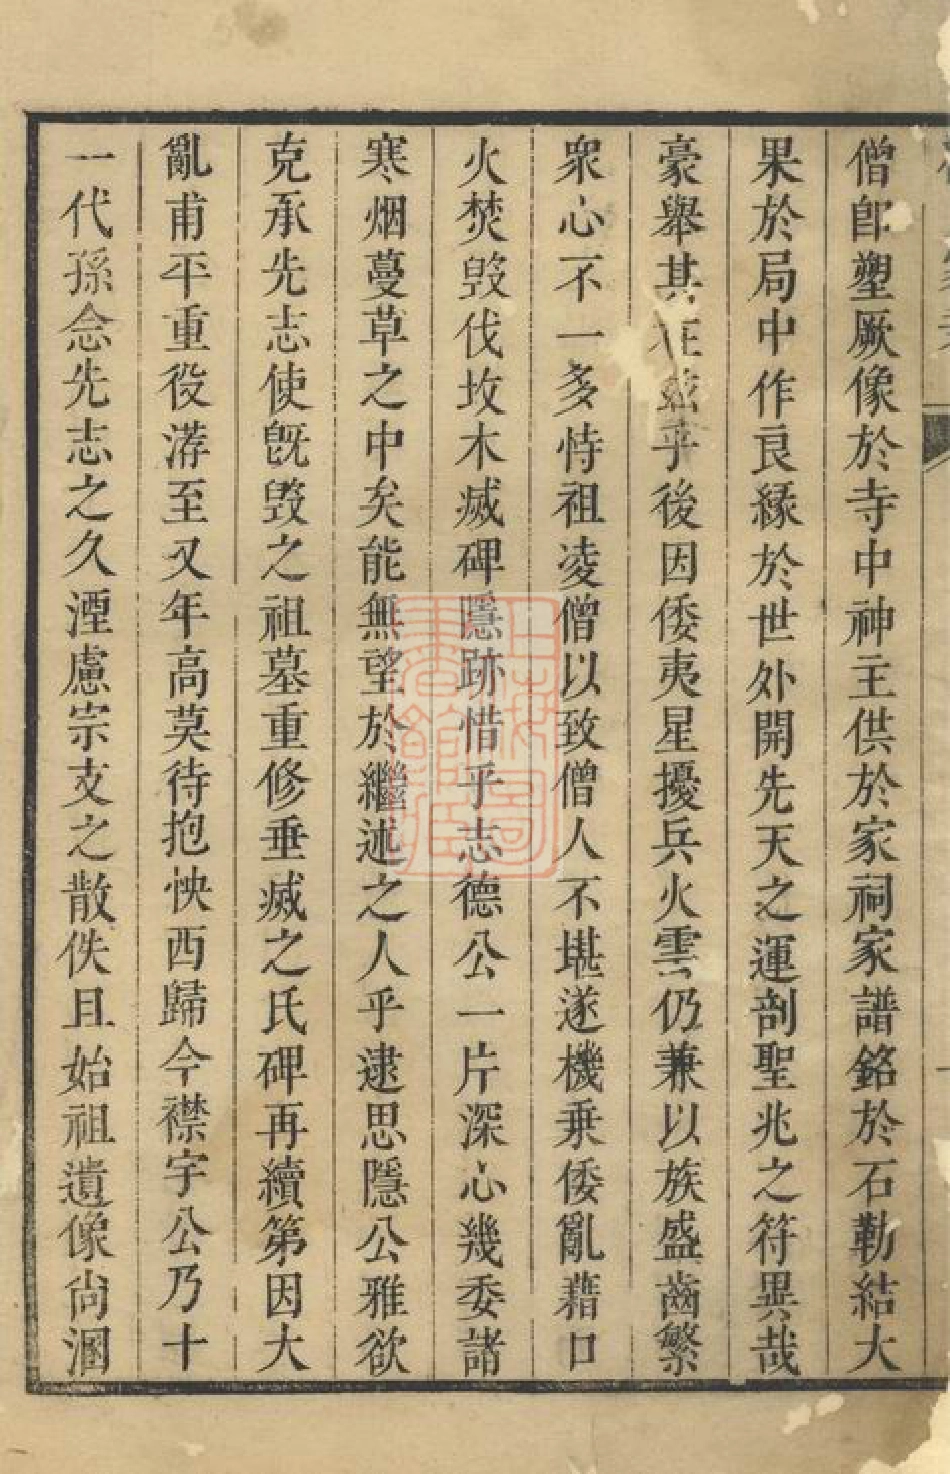 僧卽塑厥像於寺中神主供於家祠家譜銘於石勒結大
果於局中作良緣於世外開先天之運剖聖兆之符異哉
豪舉其在兹乎後因倭夷星擾兵火雲仍兼以族盛齒繁
衆心不一多恃祖凌僧以致僧人不堪遂機乘倭亂藉口
火焚毀伐坟木滅碑隱跡惜乎志德公一片深心幾委諸
寒烟蔓草之中矣能無望於繼述之人乎逮思隱公雅欲
克承先志使旣毀之祖墓重修垂滅之氏碑再續第因大
亂甫平重役洊至又年高莫待抱怏西歸今襟宇公乃十
一代孫念先志之久湮慮宗支之散佚且始祖遺像尙溷